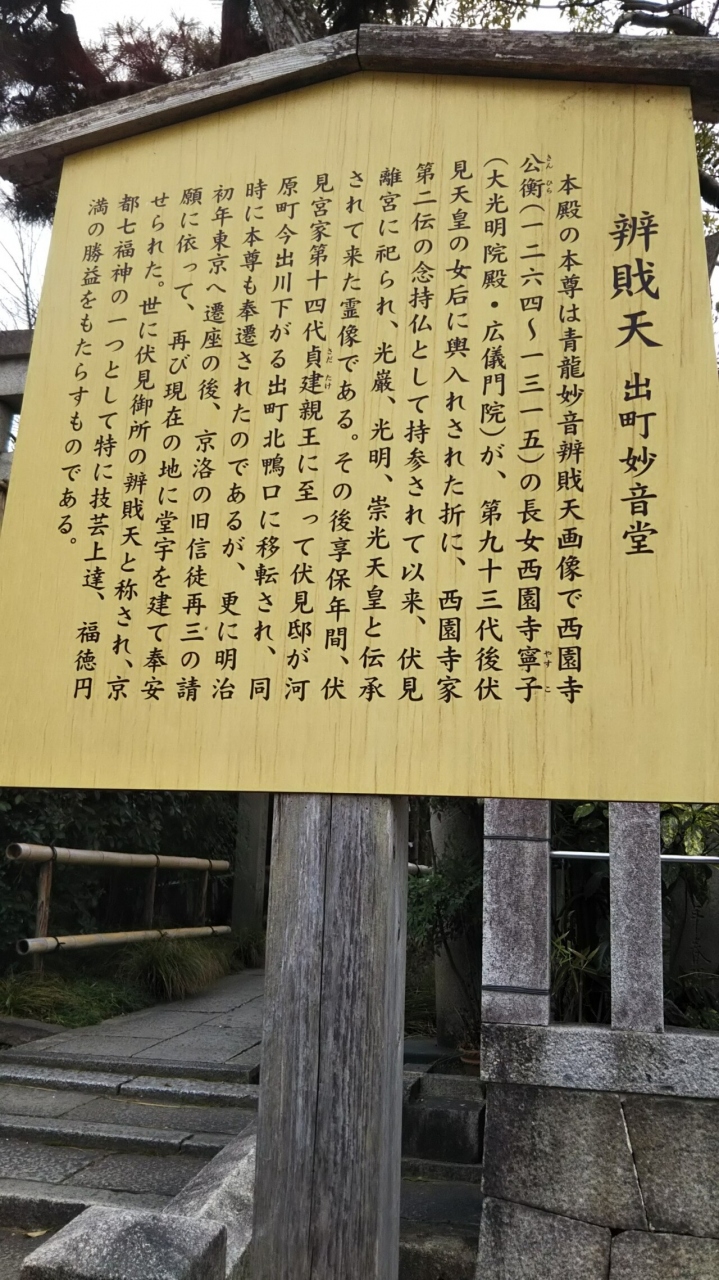 辨財天 出町妙音堂
本殿の本尊は青龍妙音辨財天画像で西園寺
公衡(一二六四～一三一五)の長女西園寺寧子
(大光明院殿・広儀門院)が、第九十三代後伏
見天皇の女后に輿入れされた折に、西園寺家
第二伝の念持仏として持参されて以来、伏見
離宮に祀られ、光巌、光明、崇光天皇と伝承
されて来た霊像である。その後享保年間、伏
見宮家第十四代貞建親王に至って伏見邸が河
原町今出川下がる出町北鴨口に移転され、同
時に本尊も奉遷されたのであるが、更に明治
初年東京へ遷座の後、京洛の旧信徒再三の請
願に依って、再び現在の地に堂宇を建て奉安
せられた。世に伏見御所の辨財天と称され、京
都七福神の一つとして特に技芸上達、福徳円
満の勝益をもたらすものである。